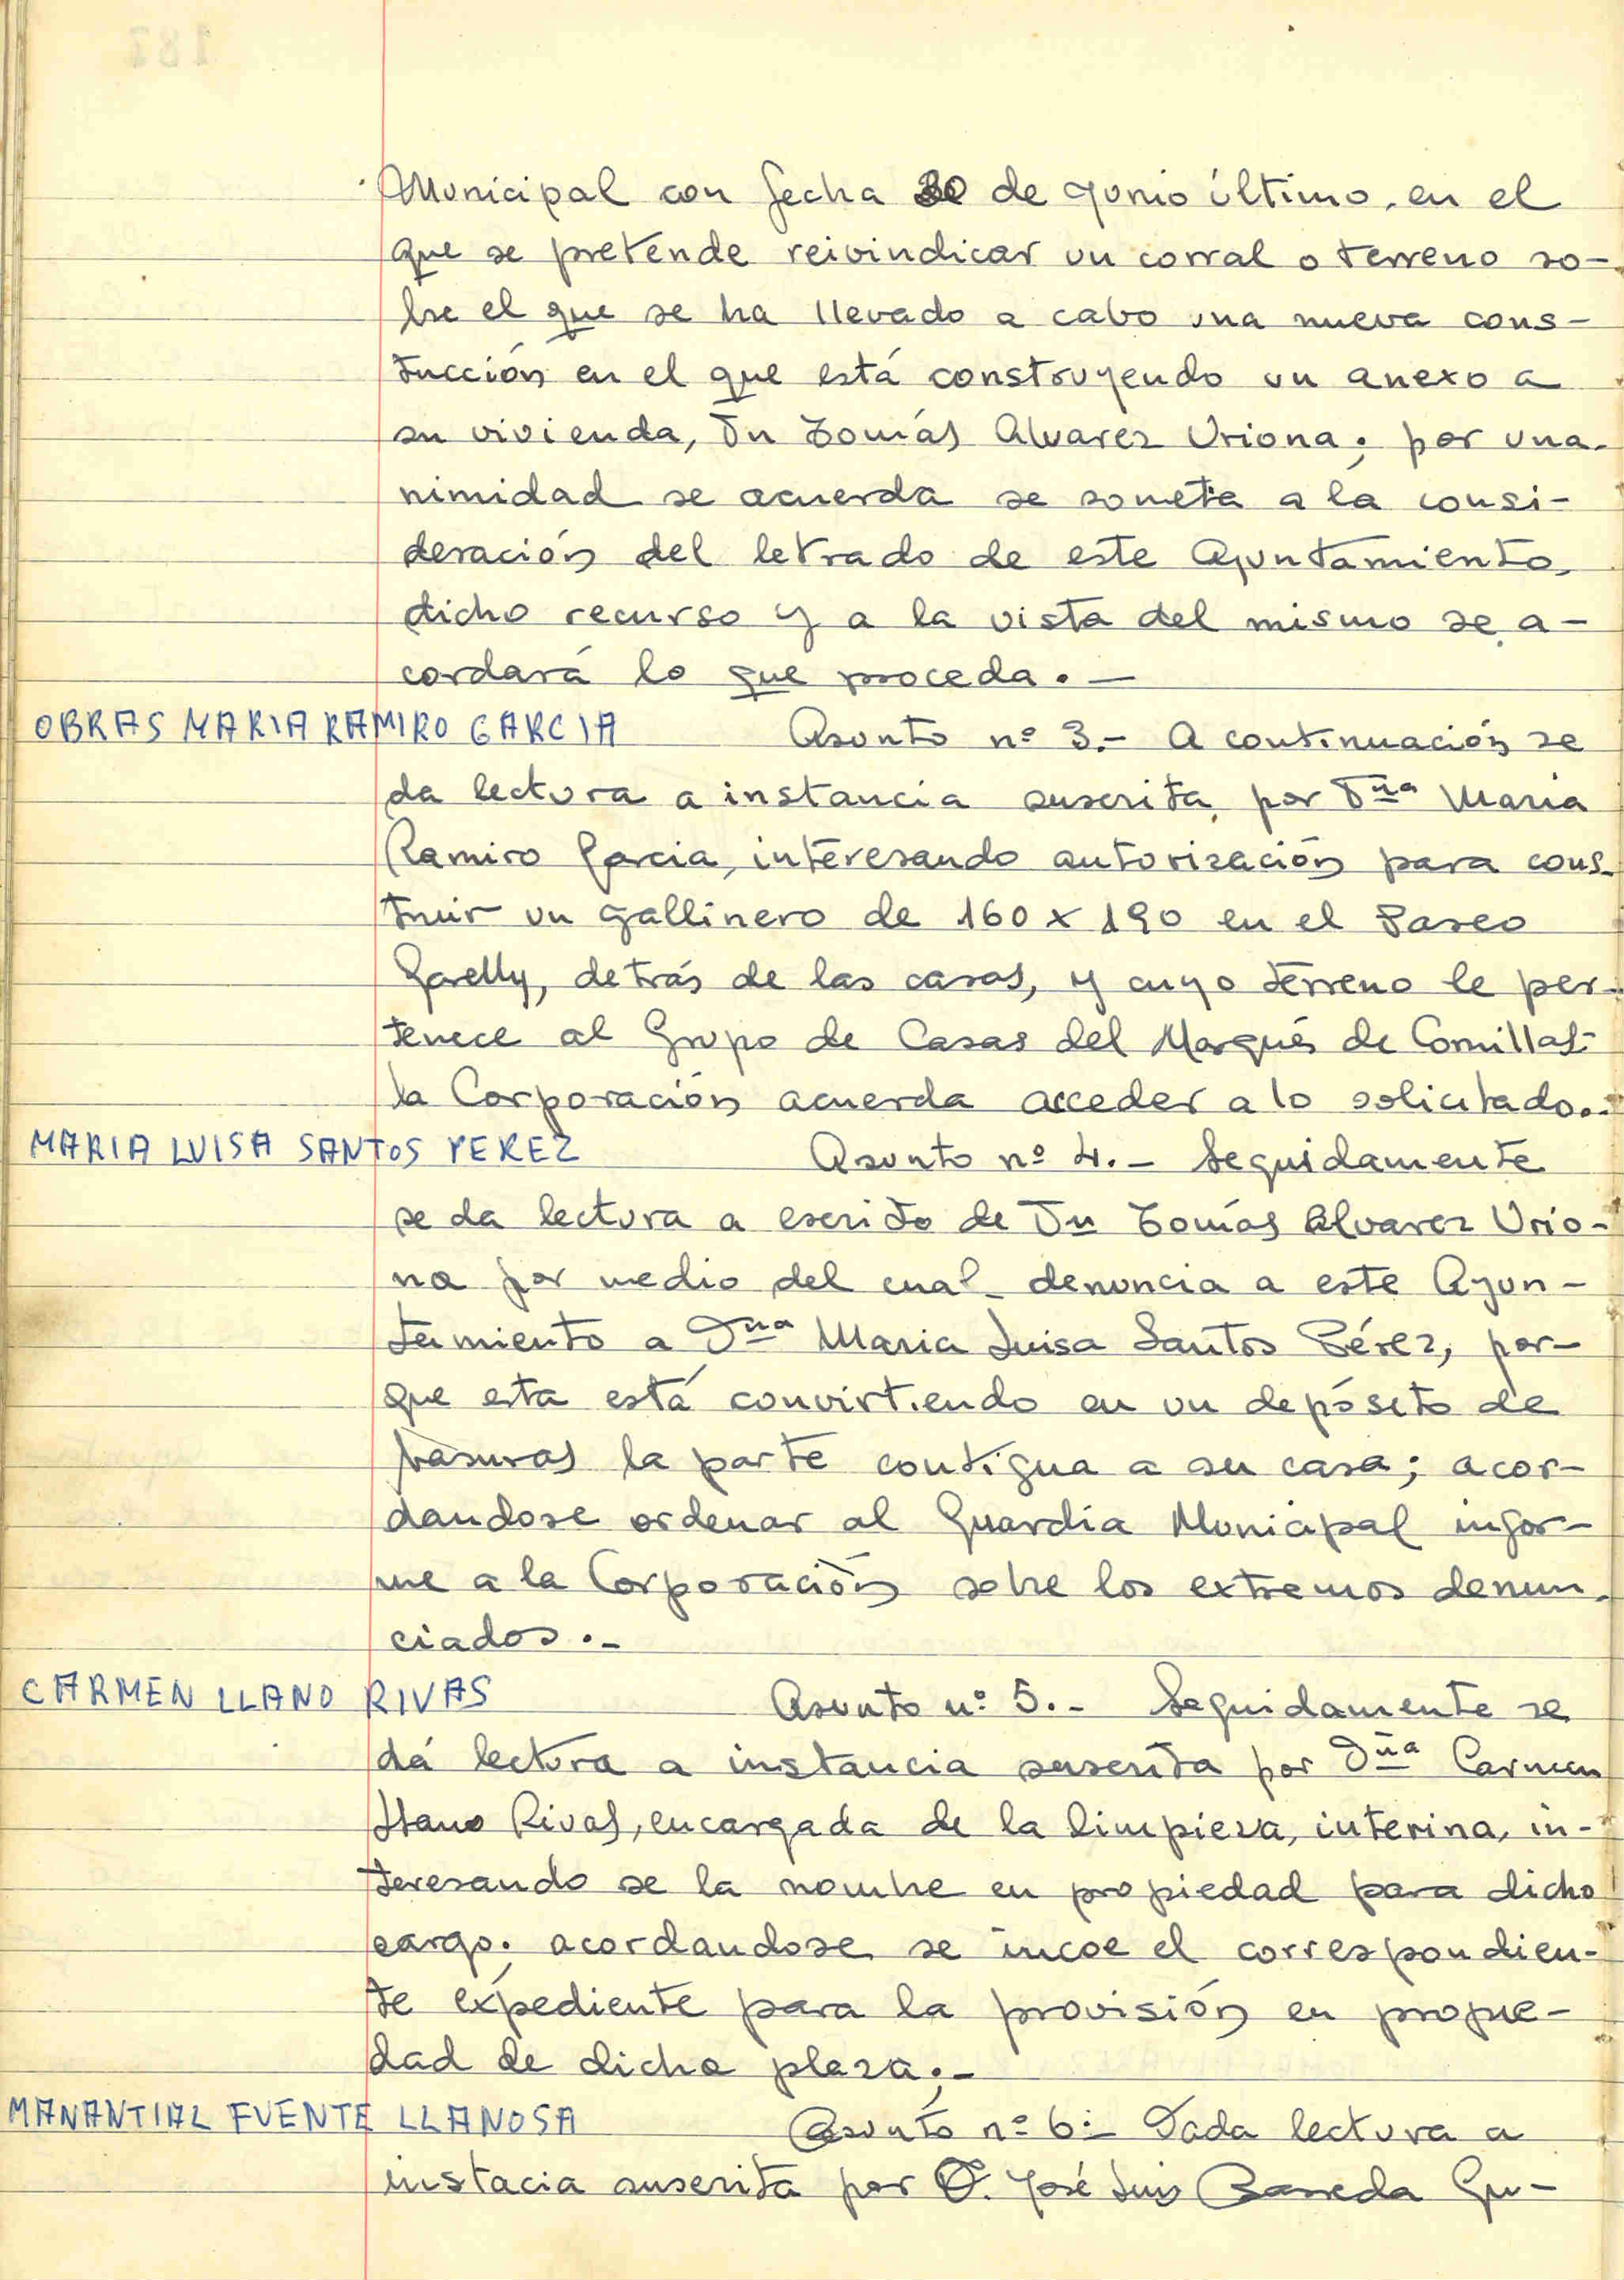 Municipal con fecha 30 de Junio último, en el
que se pretende reivindicar un corral o terreno so-
bre el que se ha llevado a cabo una nueva cons-
trucción en el que está construyendo un anexo a
su vivienda, Dn Tomás Alvarez Uriona; por una-
nimidad se acuerda se someta a la consi-
deración del letrado de este Ayuntamiento,
dicho recurso y a la vista del mismo se a-
cordará lo que proceda.-
OBRAS MARIA RAMIRO GARCIA
Asunto nº 3.- A continuación se
da lectura a instancia suscrita por Dña Maria
Ramiro Garcia, interesando autorización para cons-
truir un gallinero de 160 x 190 en el Paseo
Garelly, detrás de las casas, y cuyo terreno le per-
tenece al Grupo de Casas del Marqués de Comillas-
la Corporación acuerda acceder a lo solicitado.-
MARIA LUISA SANTOS PEREZ
Asunto nº 4.- Seguidamente
se da lectura a escrito de Dn Tomás Alvarez Urio-
na por medio del cual denuncia a este Ayun-
tamiento a Dña Maria Luisa Santos Pérez, por-
que esta está convirtiendo en un depósito de
basuras la parte contigua a su casa; acor-
dandose ordenar al Guardia Municipal infor-
me a la Corporación sobre los extremos denun-
ciados.-
CARMEN LLANO RIVAS
Asunto nº 5.- Seguidamente se
dá lectura a instancia suscrita por Dña Carmen
Llano Rivas, encargada de la limpieza, interina, in-
teresando se la nombre en propiedad para dicho
cargo; acordandose se incoe el correspondien-
te expediente para la provisión en propie-
dad de dicha plaza.-
MANANTIAL FUENTE LLANOSA
Asunto nº 6.- Dada lectura a
instacia suscrita por D. José Luis Barreda Gu-